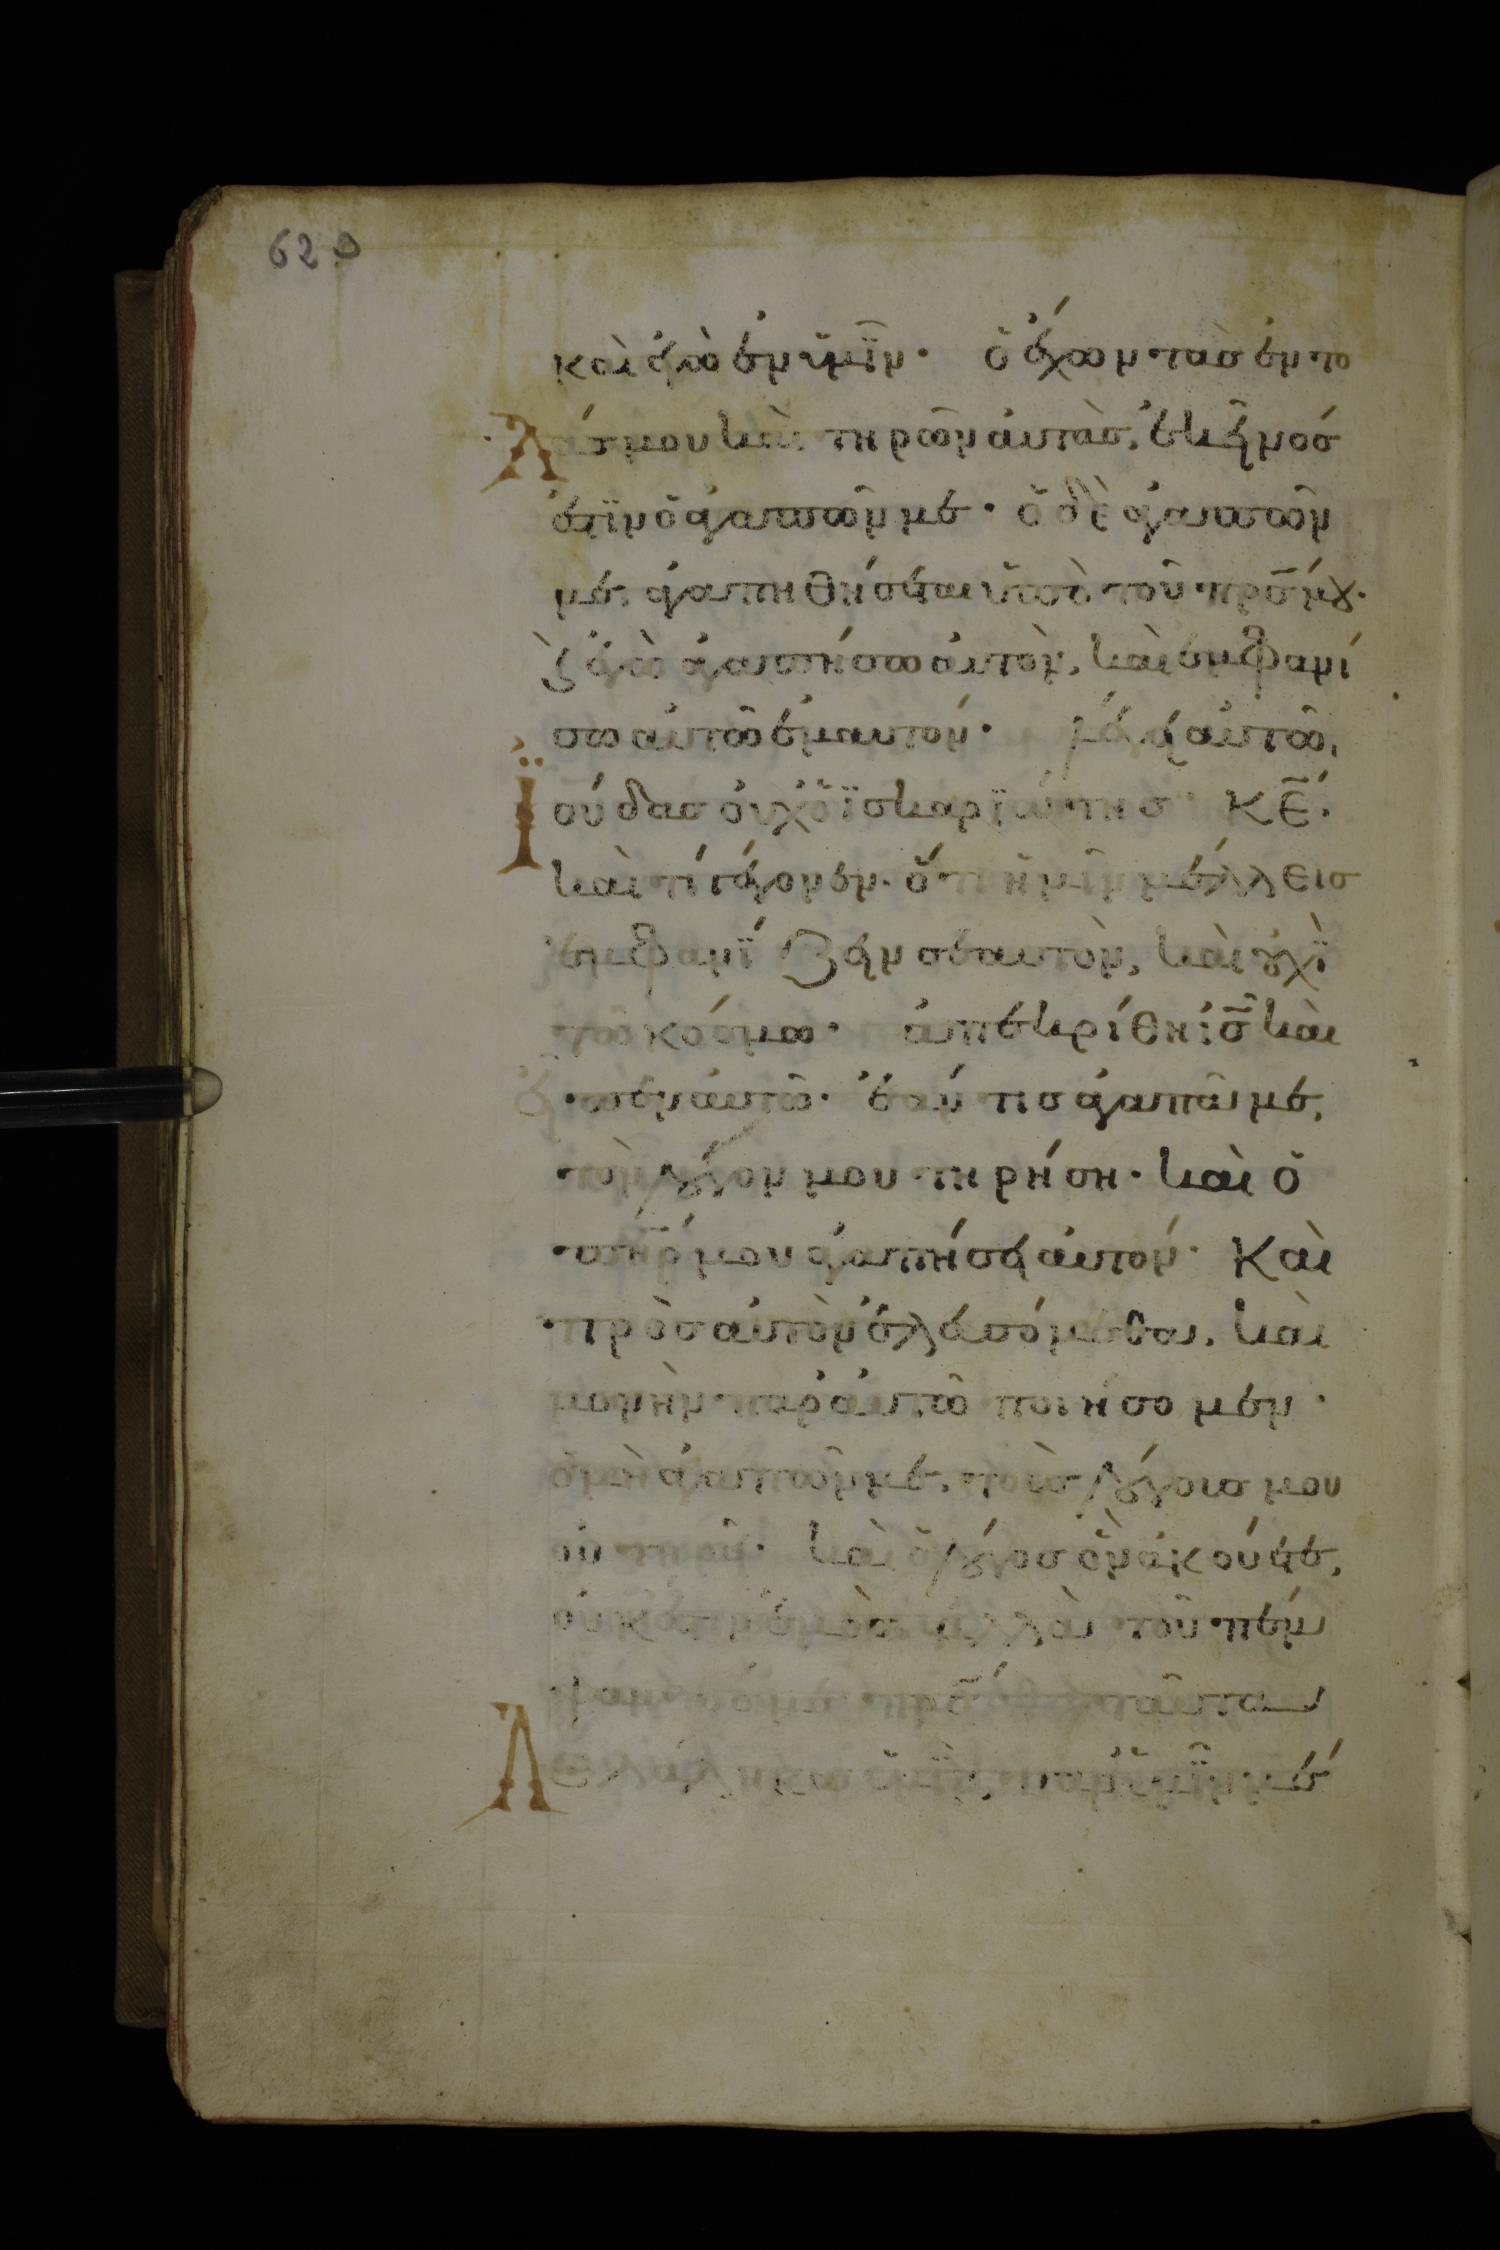 620
καὶ ἐγὼ ἐν ὑμῖν· ὁ ἔχων τὰσ ἐντο
Λάσ μου καὶ τηρῶν αὐτὰσ, ἐκεῖνοσ
ἐστϊν ὁ ἀγαπῶν με· ὁ δὲ ἀγαπῶν
με, ἀγαπηθήσεται ὑπὸ τοῦ πρ̅σ μου·
καὶ ἐγὼ ἀγαπήσω αὐτὸν, καὶ ἐμφανί
σω αὐτῶ ἐμαυτόν· λέγει αὐτῶ,
Ϊούδασ οὐχ ὁ ϊσκαρϊώτησ· κ̅ε̅·
καὶ τί γέγονεν· ὅτι ἡμῖν μέλλεισ
ἐμφανΐζειν σεαυτὸν, καὶ οὐχὶ
τῶ κόσμω· ἀπεκρίθη ι̅σ̅ καὶ
εἶπεν αὐτῶ· ἐάν τισ ἀγαπᾶ με,
τὸν λόγον μου τηρήση· καὶ ὁ
π̅η̅ρ̅ μου ἀγαπήσει αὐτόν· Καὶ
πρὸσ αὐτὸν ἐλευσόμεθα, καὶ
μονὴν παρ' αὐτῶ ποιήσομεν·
ὁ μὴ ἀγαπῶν με, τοὺσ λόγουσ μου
οὐ τηρεῖ· καὶ ὁ λόγοσ ὃν ἀκούετε,
οὐκ ἔστιν ἐμὸσ ἀλλὰ τοῦ πέμ
ψαντόσ με πρ̅σ̅· ταῦτα
Λελάληκα ὑμῖν, παρ' ὑμῖν μέ